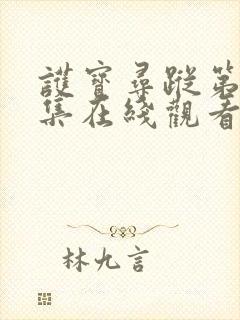 護寶尋蹤第
集在綫觀看
林九言